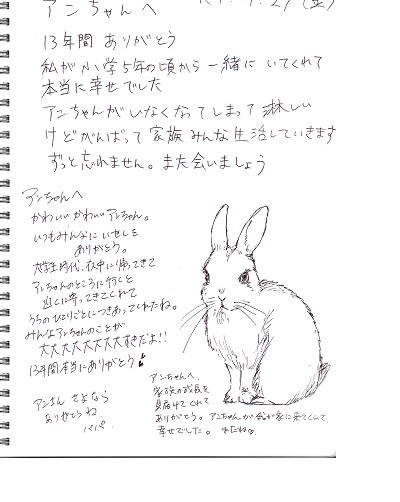 アンちゃんへ
13年間 ありがとう
私が小学5年の頃から一緒に いてくれて
本当に幸せでした
アンちゃんがいなくなってしまって淋しい
けどがんばって 家族みんな生活していきます
ずっと忘れません。また会いましょう
アンちゃんへ
かわいいかわいいアンちゃん。
いつもみんなに いやしを
ありがとう。
大学生時代、夜中に帰ってきて
アンちゃんのところに行くと
近くに寄ってきてくれて
うちのひとりごとにつきあってくれたね。
みんなアンちゃんのことが
大大大大大大大大すきだよ!!
13年間本当にありがとう
アンちゃん さよなら
ありがとうね
パパ
アンちゃんへ
家族の成長を
見届けてくれて
ありがとう。アンちゃんが 我が家に来てくれて
幸せでした。 またね